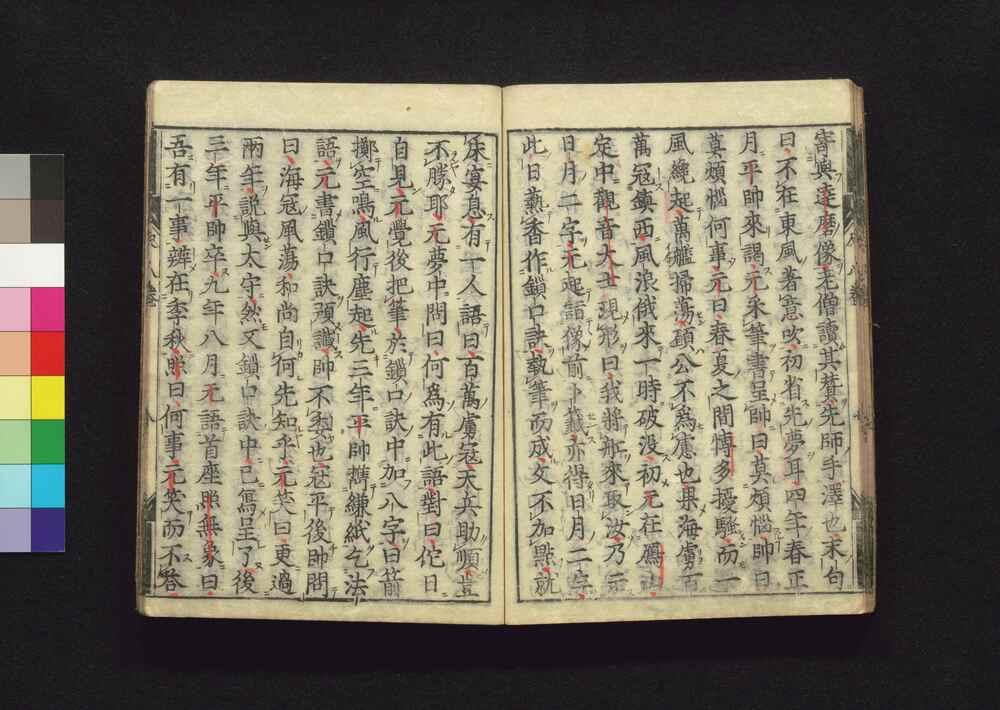 寄與達磨像老僧讀其賛先師手澤也末句
曰不在東風著意吹初省先夢耳四年春正
月平帥來謁元采筆書呈帥曰莫煩惱帥曰
莫煩惱何事元曰春夏之間博多擾騷而一
風纔起萬艦掃蕩願公不爲慮也果海虜百
萬寇鎮西風浪俄來一時破没初元在鴈山
定中觀音大士現形曰我將舩來取汝乃示
日月二字元起詣像前卜籤亦得日月二字
此日爇香作鎖口訣執筆而成文不加點就
床宴息有一人語曰百萬虜寇天兵助順豈
不勝耶元夢中問曰何爲有此語對曰佗日
自見元覺後把筆於鎖口訣中加八字曰箭
擲空鳴風行塵起先三年平帥齎縑紙乞法
語元書鎖口訣預讖帥不契也寇平後帥問
曰海寇風蕩和尚自何先知乎元笑曰更過
兩年説與太守然又鎖口訣中已寫呈了後
三年平帥卒九年八月元語首座照無象曰
吾有一事辨在季秋照曰何事元笑而不答